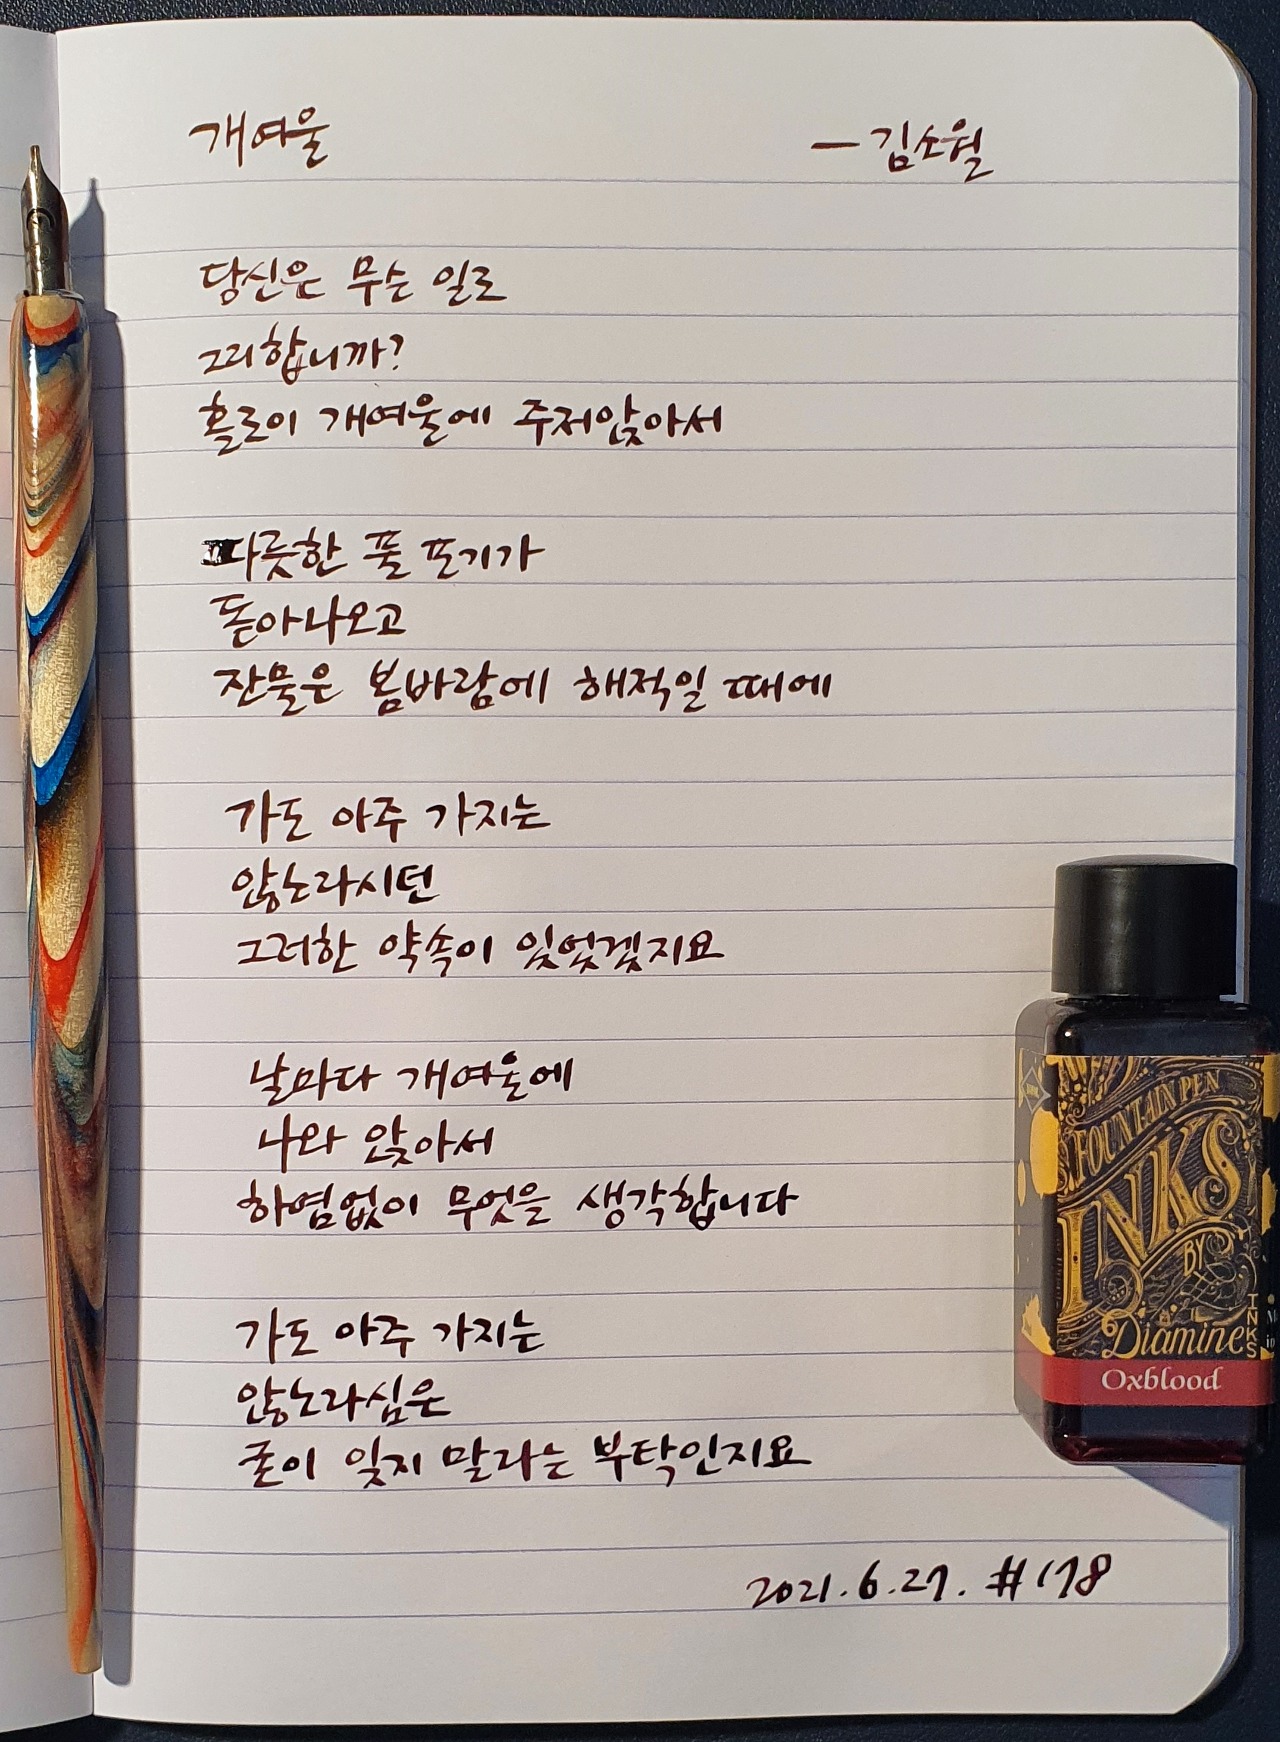 개여울 — 김소월
당신은 무슨 일로
그리합니까?
홀로이 개여울에 주저앉아서
따릇한 풀 포기가
돋아나오고
잔물은 봄바람에 해적일 때에
가도 아주 가지는
않노라시던
그러한 약속이 있었겠지요
날마다 개여울에
나와 앉아서
하염없이 무엇을 생각합니다
가도 아주 가지는
않노라심은
굳이 잊지 말라는 부탁인지요
2021.6.27. #178
FOUNTAIN PEN
INKS
BY
Diamine
INKS
Oxblood